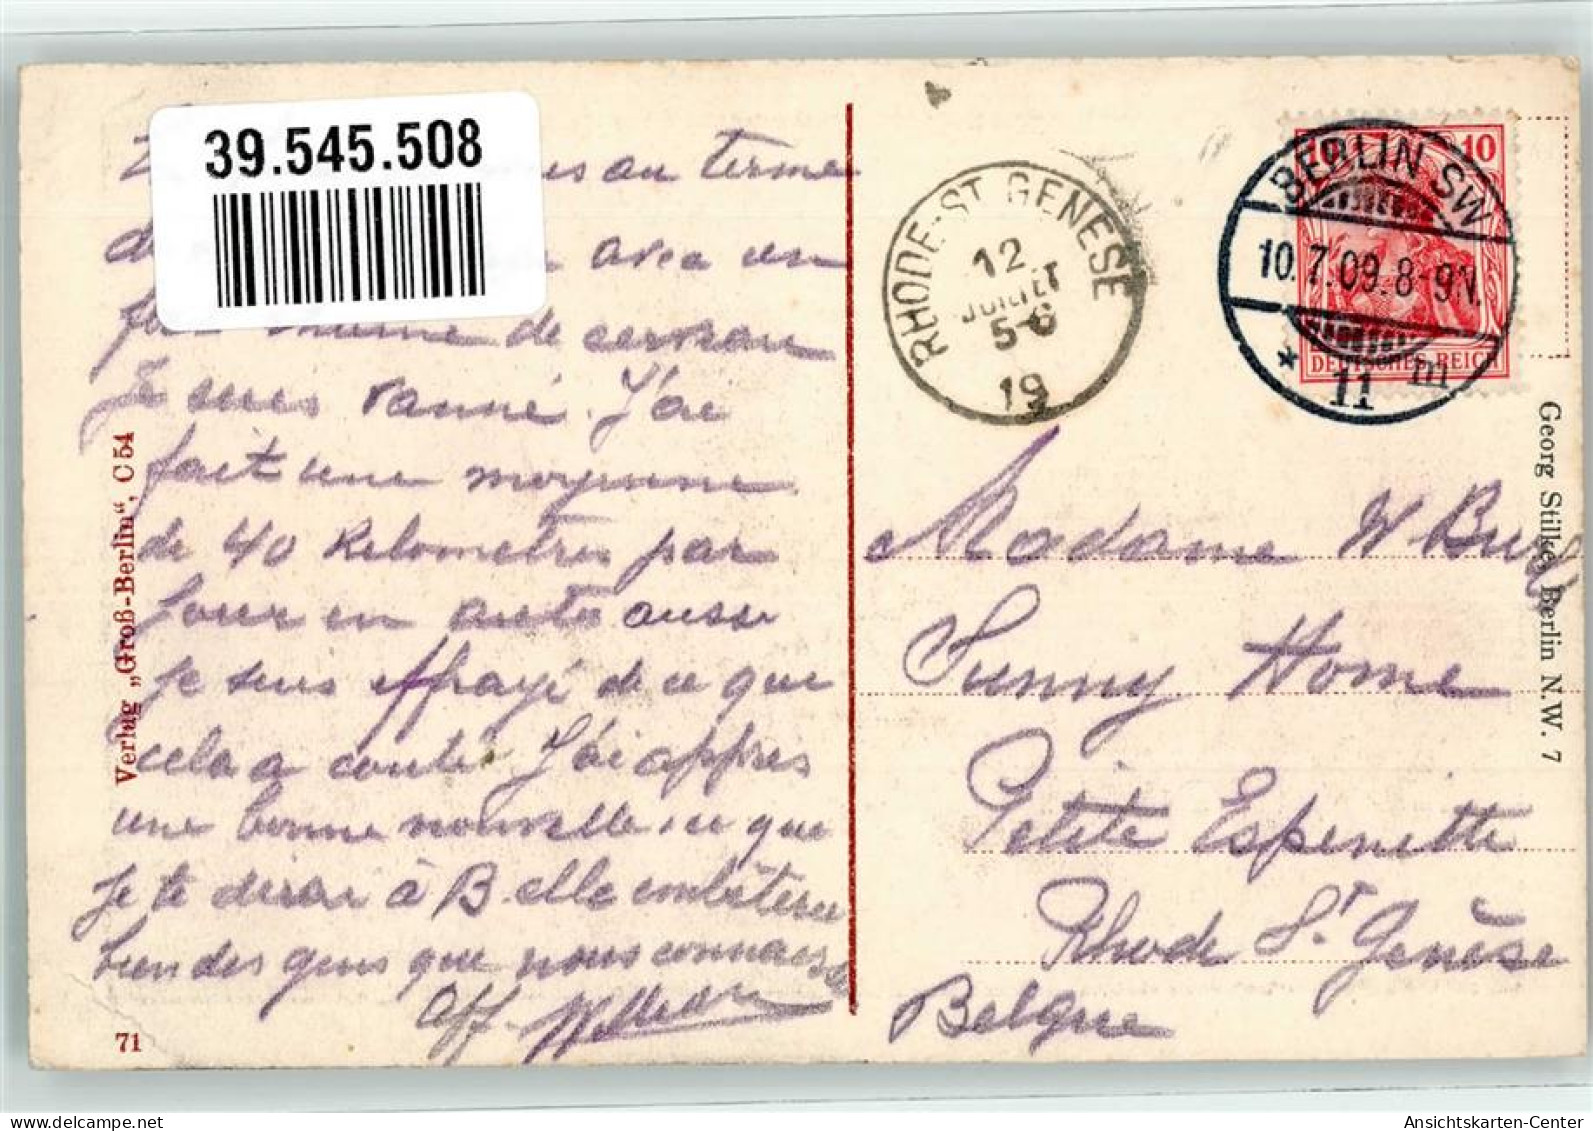 39.545.508
au terme
avec un
de cerveau
Je suis vanné. J'ai
fait une moyenne
de 40 Kilometres par
jour en auto aussi
je suis effrayé de ce que
cela a couté. J'ai appris
une bonne nouvelle, ce que
je te dirai à B. elle embêtera
bien des gens que nous connaissons
Aff.
Verlag „Groß-Berlin“, C 54
71
RHODE-ST GENESE
12
JUILLET
5-6
19
BERLIN SW
10.7.09.8-9N.
* 11 m
10 10
DEUTSCHES REICH
Georg Stilke, Berlin N.W. 7
Madame W
Sunny Home
Petite Espinette
Rhode St. Genèse
Belgique
Ansichtskarten-Center